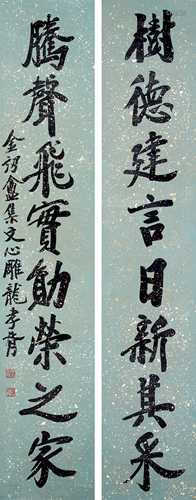 樹德建言日新其采
騰聲飛實勛榮之家
盦集文心雕龍孝胥